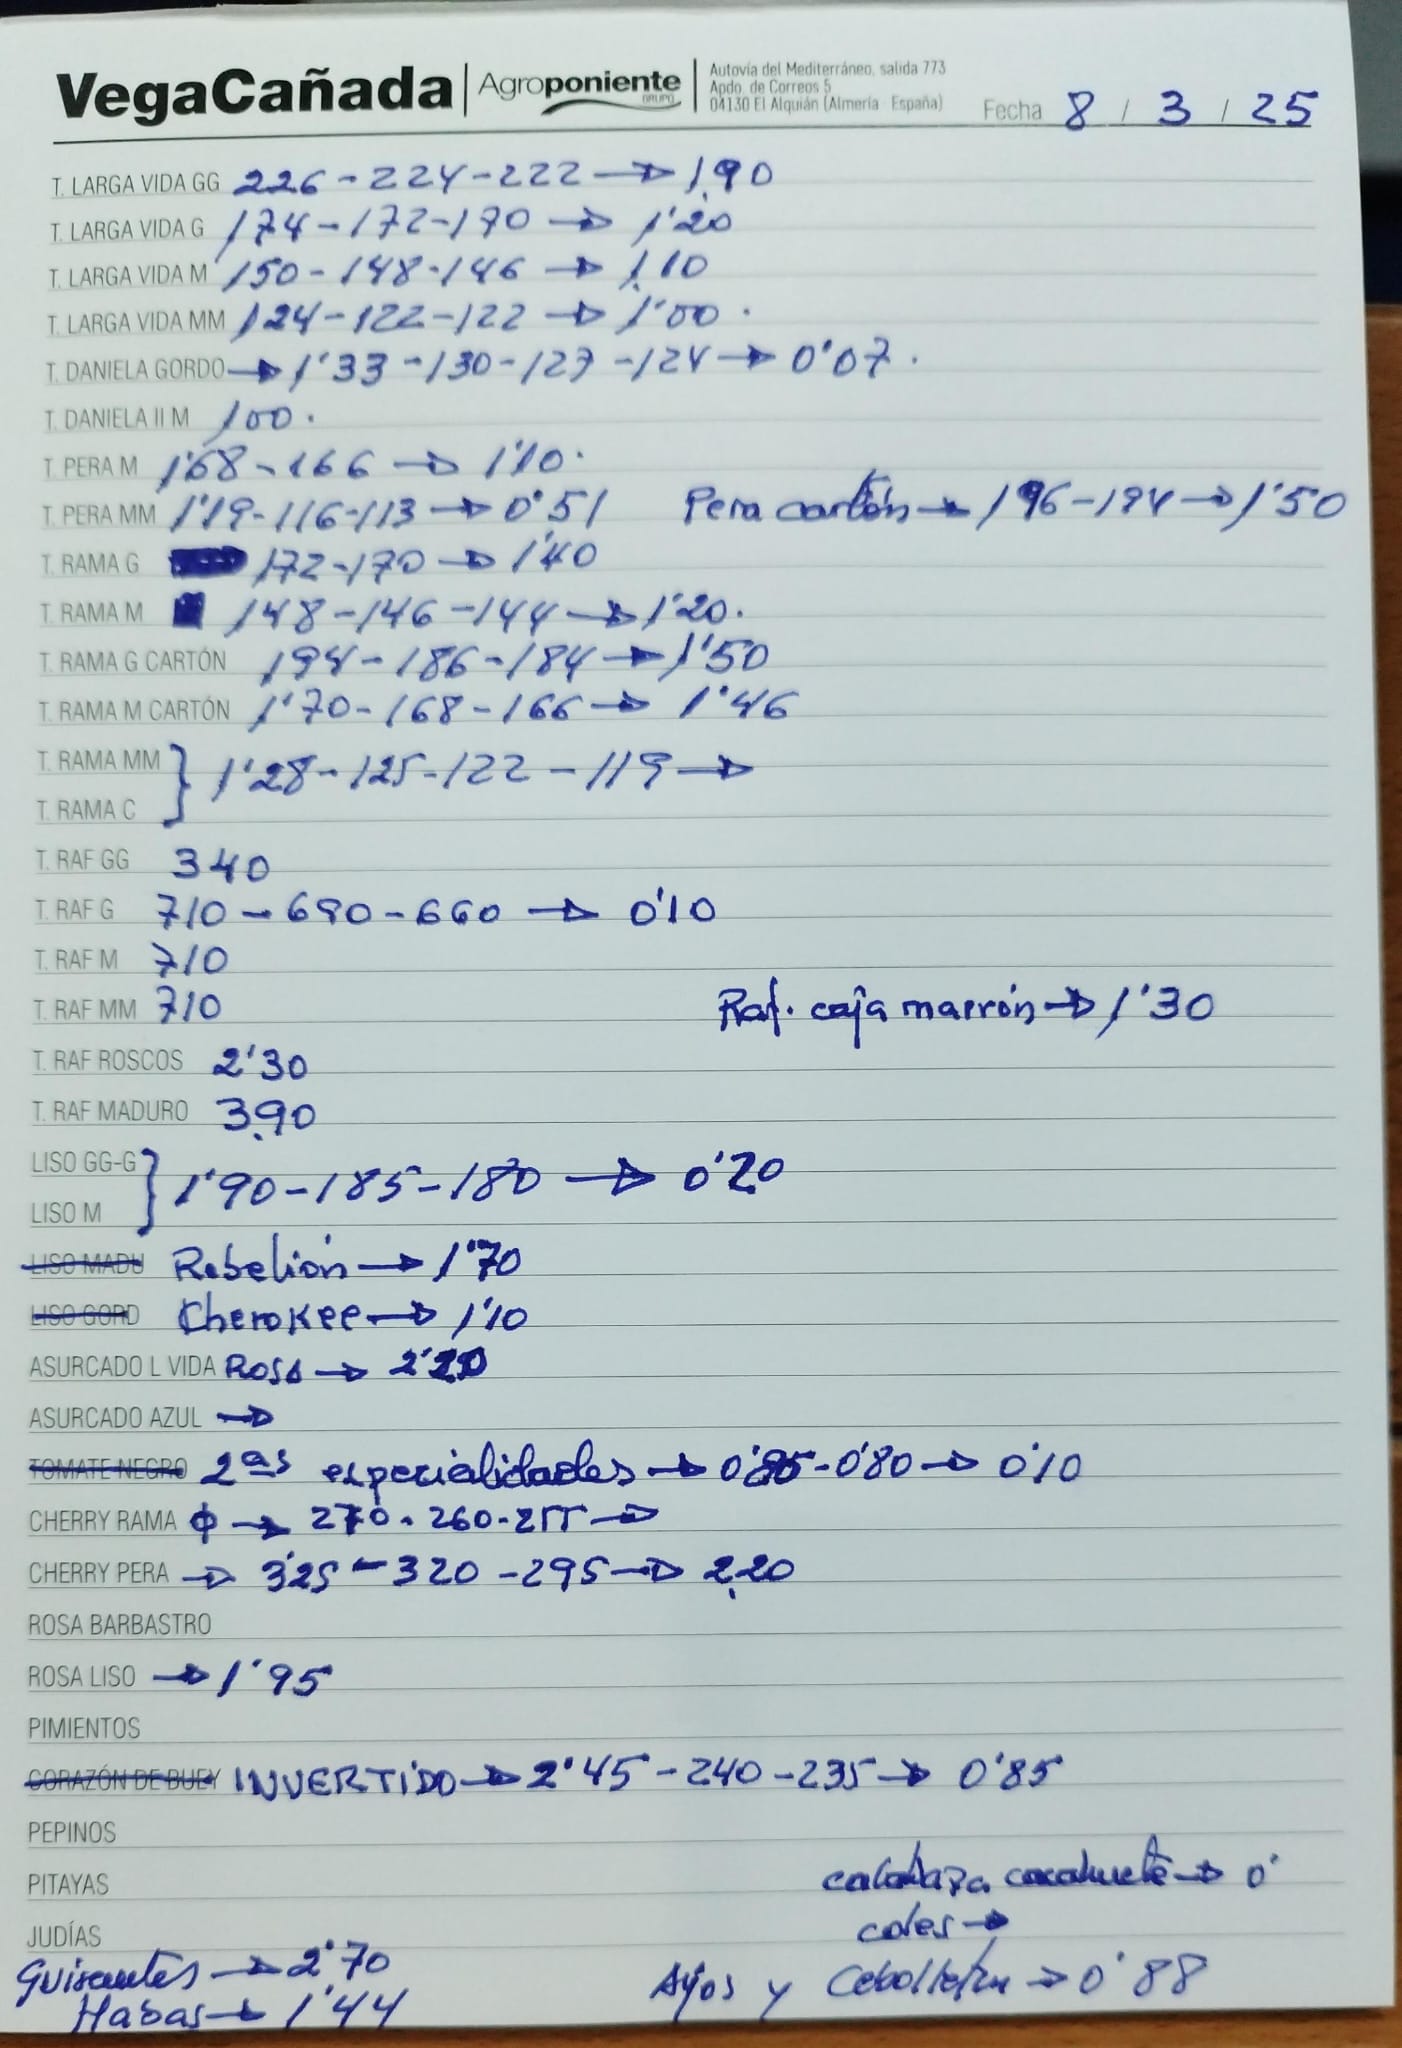 VegaCañada | Agroponiente GRUPO | Autovía del Mediterráneo, salida 773
Apdo. de Correos 5
04130 El Alquián (Almería - España)
Fecha 8 / 3 / 25
T. LARGA VIDA GG 226 - 224 - 222 → 1'90
T. LARGA VIDA G 174 - 172 - 170 → 1'20
T. LARGA VIDA M 150 - 148 - 146 → 1'10
T. LARGA VIDA MM 124 - 122 - 122 → 1'00.
T. DANIELA GORDO → 1'33 - 130 - 127 - 124 → 0'07.
T. DANIELA II M 100.
T. PERA M 1'68 - 166 → 1'10.
T. PERA MM 1'19 - 116 - 113 → 0'51 Pera cartón → 196 - 194 → 1'50
T. RAMA G 172 - 170 → 1'40
T. RAMA M 148 - 146 - 144 → 1'20.
T. RAMA G CARTÓN 194 - 186 - 184 → 1'50
T. RAMA M CARTÓN 1'70 - 168 - 166 → 1'46
T. RAMA MM } 1'28 - 125 - 122 - 119 →
T. RAMA C
T. RAF GG 340
T. RAF G 710 - 690 - 660 → 0'10
T. RAF M 710
T. RAF MM 710 Raf. caja marrón → 1'30
T. RAF ROSCOS 2'30
T. RAF MADURO 3,90
LISO GG-G } 1'90 - 185 - 180 → 0'20
LISO M
LISO MADU Rebelión → 1'70
LISO GORD Cherokee → 1'10
ASURCADO L VIDA ROSA → 2'20
ASURCADO AZUL →
TOMATE NEGRO 2as especialidades → 0'85 - 0'80 → 0'10
CHERRY RAMA ϕ → 270 - 260 - 255 →
CHERRY PERA → 3'25 - 320 - 295 → 2,20
ROSA BARBASTRO
ROSA LISO → 1'95
PIMIENTOS
CORAZÓN DE BUEY INVERTIDO → 2'45 - 240 - 235 → 0'85
PEPINOS
PITAYAS calabaza cacahuete → 0'
JUDÍAS coles →
Guisantes → 2'70 Ajos y Cebolletas → 0'88
Habas → 1'44